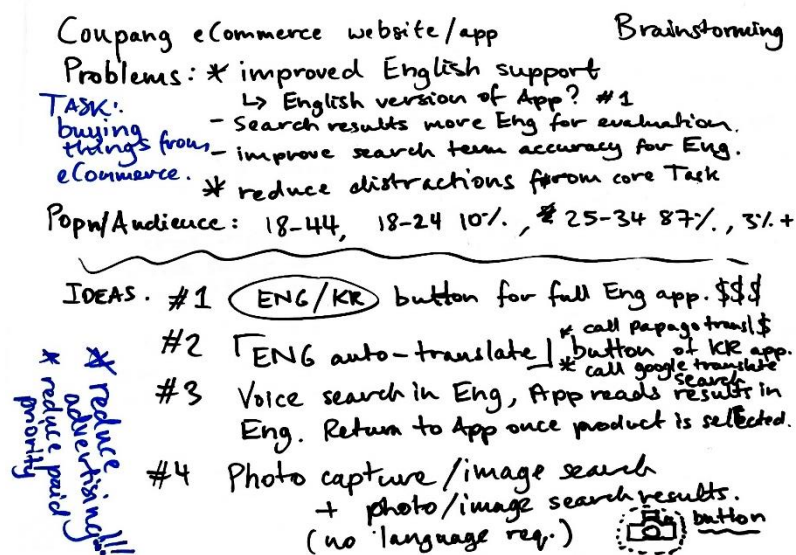 Coupang eCommerce website/app Brainstorming
Problems: * improved English support
↳ English version of App? #1
TASK:
buying
things from
eCommerce.
- Search results more Eng for evaluation.
- improve search term accuracy for Eng.
* reduce distractions from core Task
Popn/Audience: 18-44, 18-24 10%, 25-34 87%, 3%+
IDEAS. #1 ENG/KR button for full Eng app. $$$
#2 「ENG auto-translate」 button of KR app.
* call papago transl $
* call google translate
#3 Voice search in Eng, App reads search results in
Eng. Return to App once product is selected.
#4 Photo capture/image search
+ photo/image search results.
(no language req.) button
* reduce
advertising!!!
* reduce paid
priority